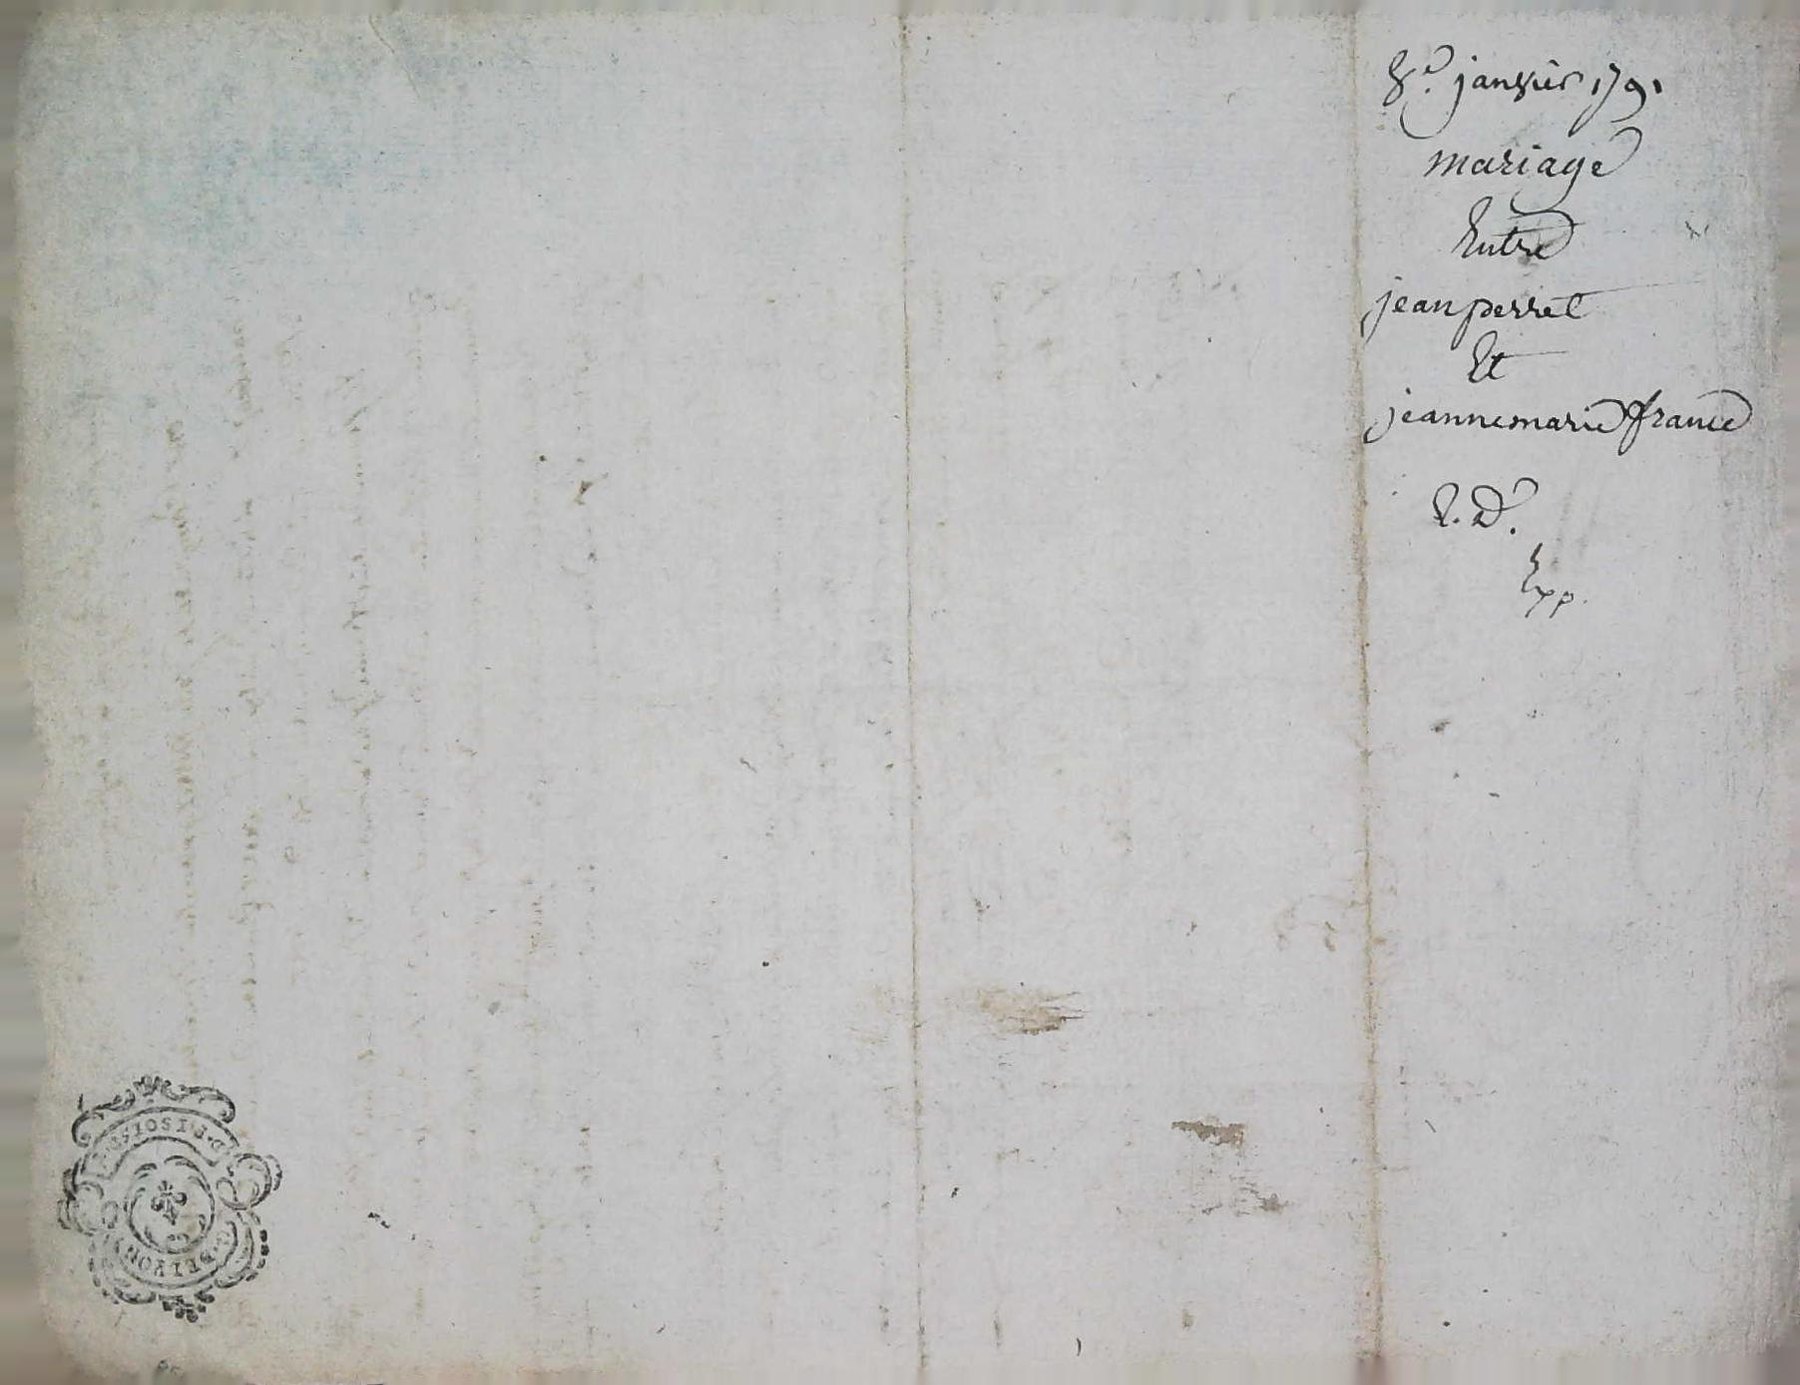 8e. janvier 1791
mariage
Entre
jean perret
Et
jeanne marie france
E. D.
Exp.
G. DE LYON